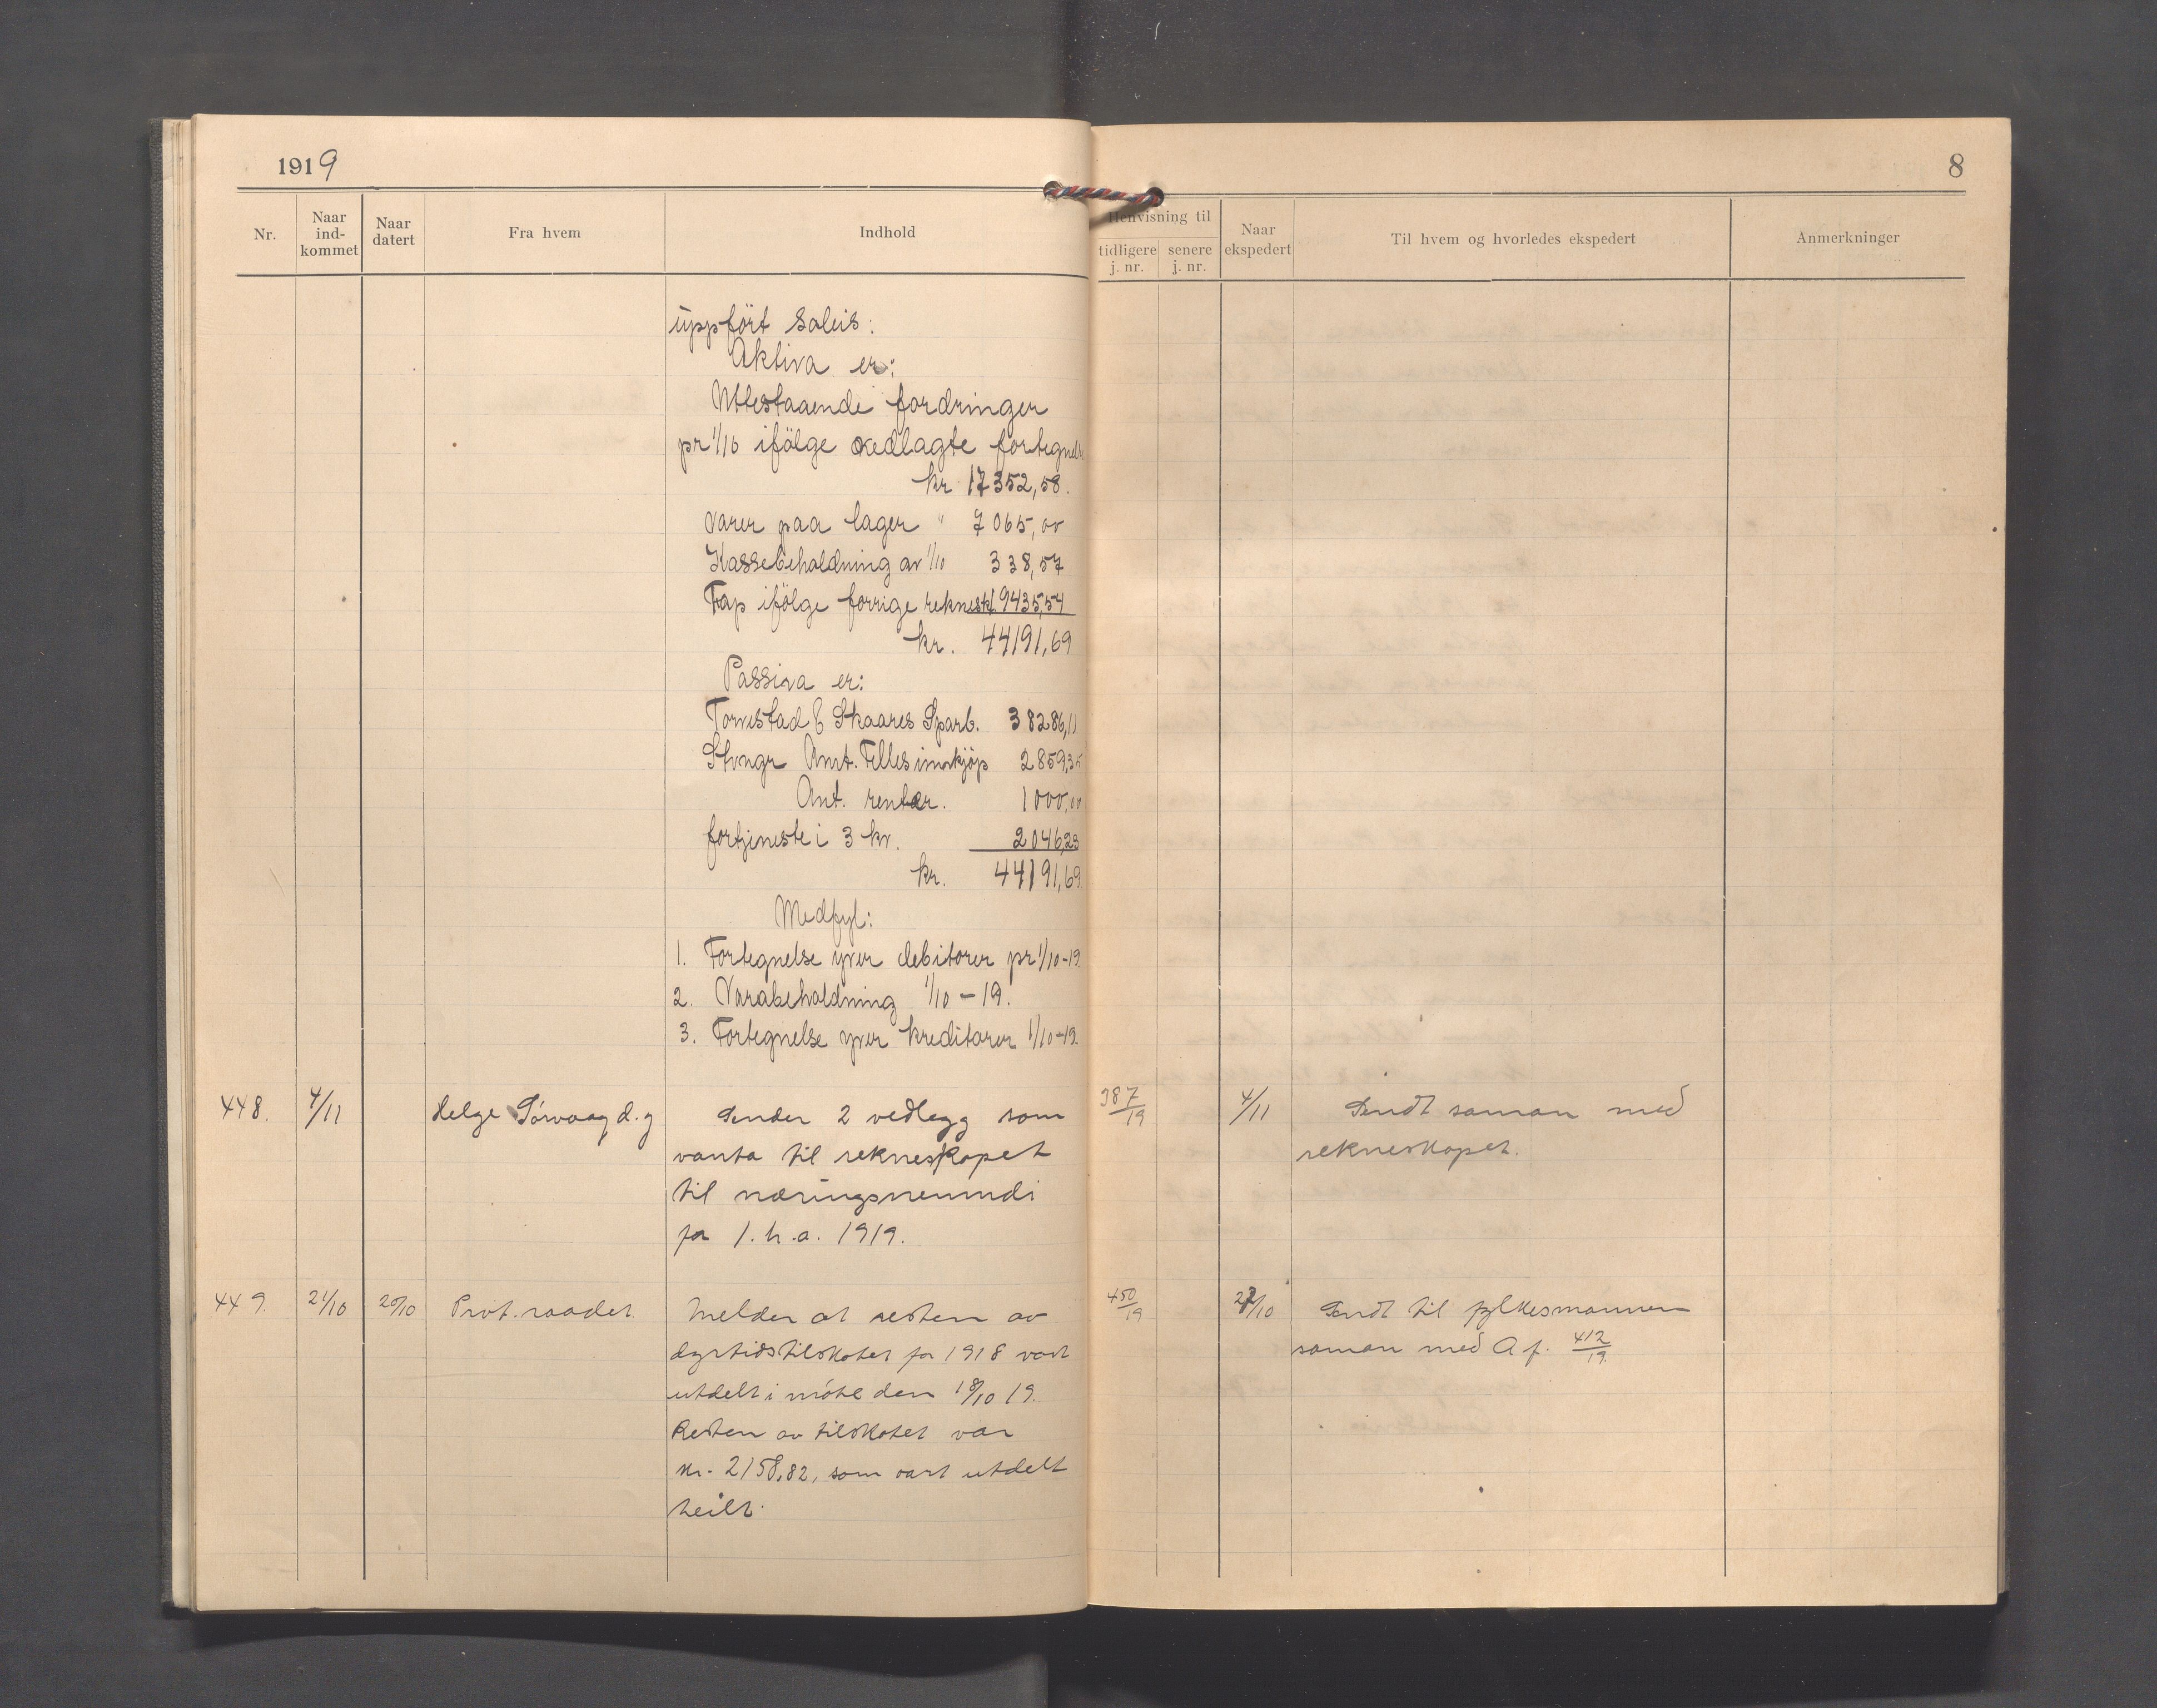 1919
8
Nr.
Naar ind-kommet
Naar datert
Fra hvem
Indhold
Henvisning til
tidligere j. nr.
senere j. nr.
Naar ekspedert
Til hvem og hvorledes ekspedert
Anmerkninger
uppført soleis:
Aktiva er:
Utestaaende fordringer
pr 1/10 ifølge vedlagte fortegnelse
kr 17352,58.
Varer paa lager " 7065,00
Kassebehaldning av 1/10 338,57
Tap ifølge forrige reknesk. 19435,54
kr. 44191,69
Passiva er:
Torvestad & Skaares Sparb. 38286,11
Stvngr Amt. Felles innkjøp 2859,35
Ant. renter. 1000,00
fortjeneste i 3 kv. 2046,23
kr. 44191,69
Medfyl:
1. Fortegnelse yver debitorer pr 1/10-19.
2. Varabehaldning 1/10-19.
3. Fortegnelse yver kreditorer 1/10-19.
448. 4/11 Helge Sørvaag d.y Sender 2 vedlegg som 387/19 4/11 Sendt saman med
vanta til rekneskapet rekneskapet.
til næringsnemndi
for 1. h.a. 1919.
449. 21/10 20/10 Prov.raadet Melder at resten av 450/19 27/10 Sendt til fylkesmannen
dyrtidstilskotet for 1918 vart saman med A f. 412/19.
utdelt i møte den 18/10 19.
Resten av tilskotet var
kr. 2158,82, som vart utdelt
heilt.